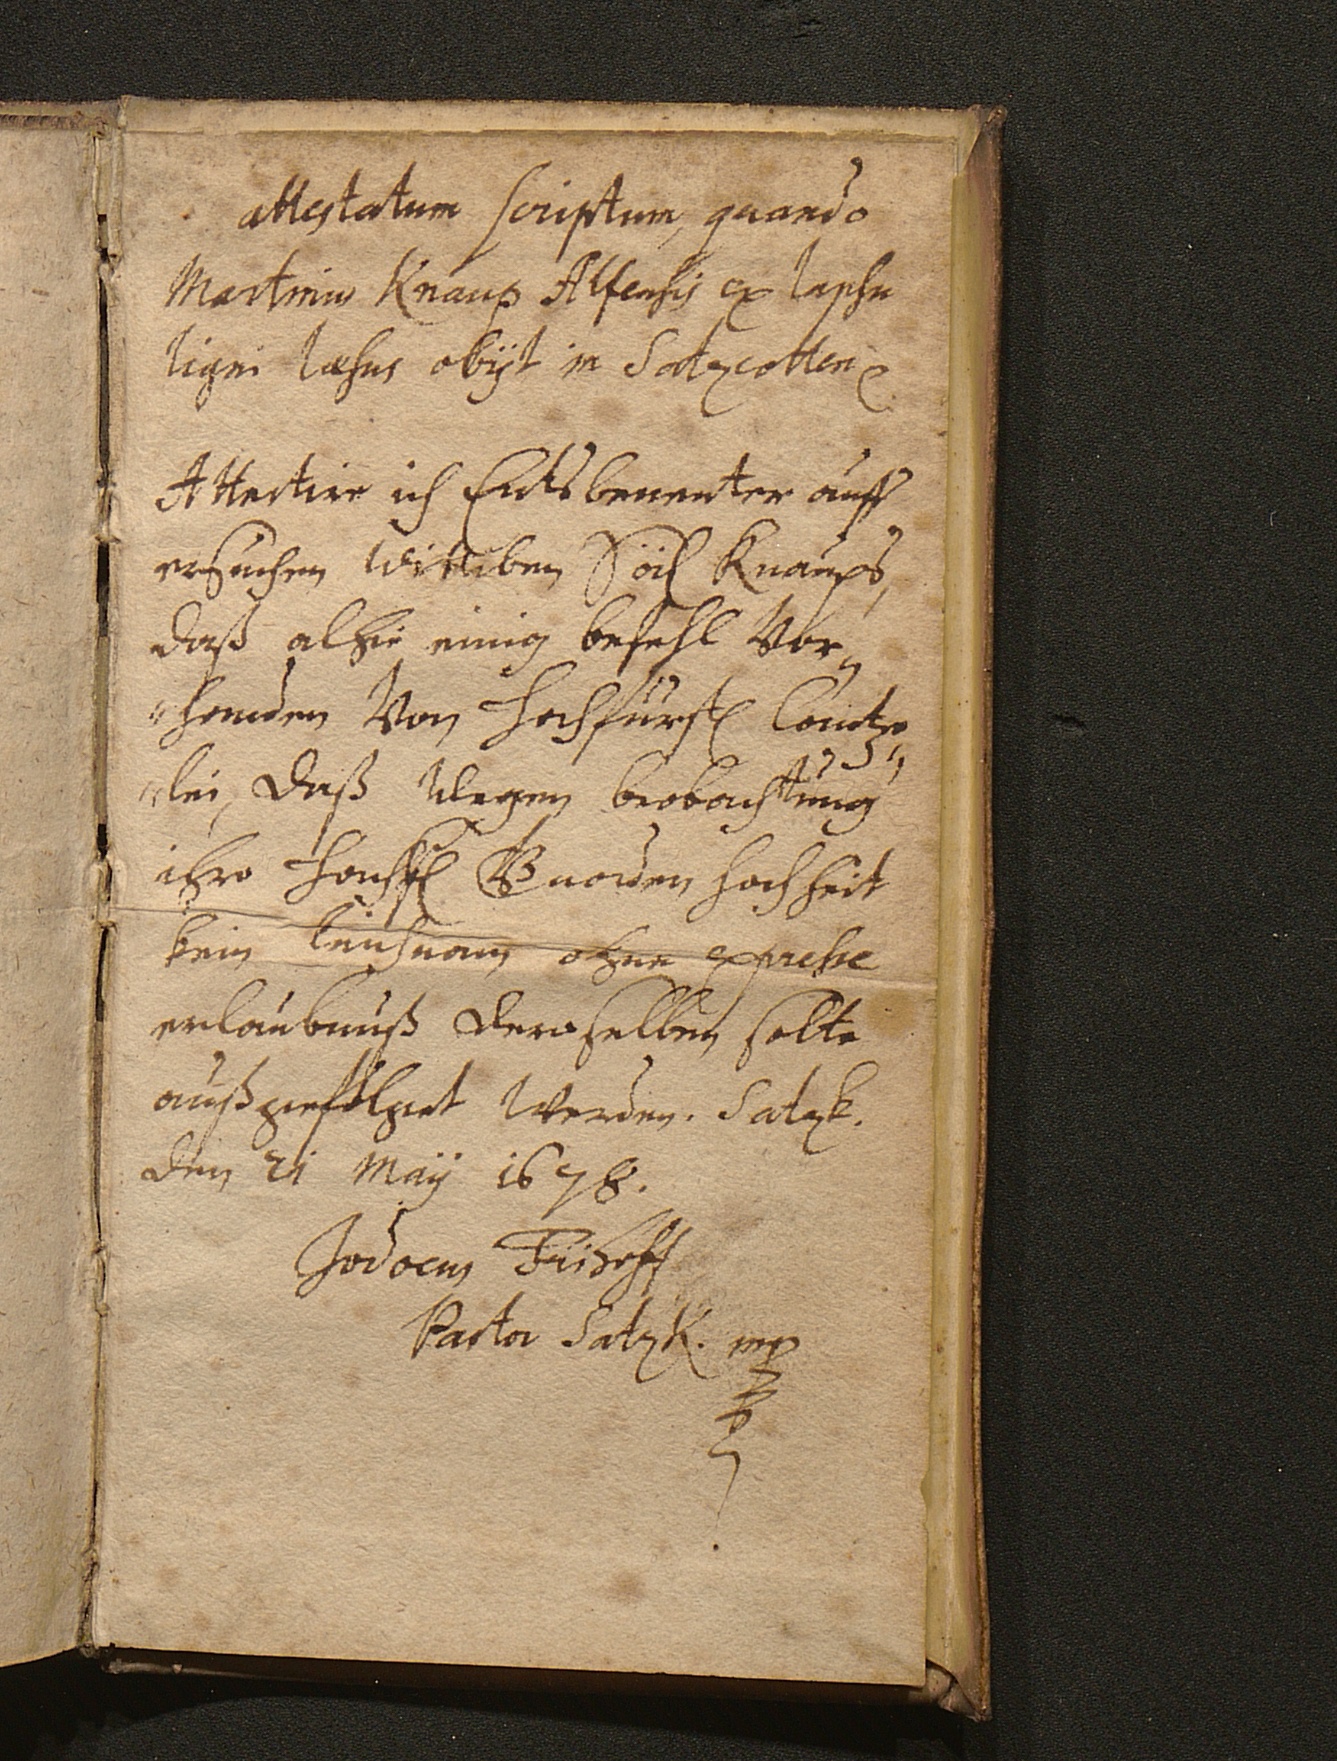 attestatum scriptum, quando
Martinus Knaup Alfensis ex lapsu
ligni læsus obijt in Saltzcotten
Attestire ich Endtsbenenter auff
ersuchen Wittiben Knaups,
daß alhie einig befehl Vor„
„handen Von Hochfürstl Cantze„
„lei, daß Wegen beobachtung
ihro Gnaden hochheit
kein leichnam ohne expresse
erlaubnuß deroselben solte
außgefolget Werden. Saltzk.
den 21 Maij 1678.
Jodocus
Pastor Saltzk. mp